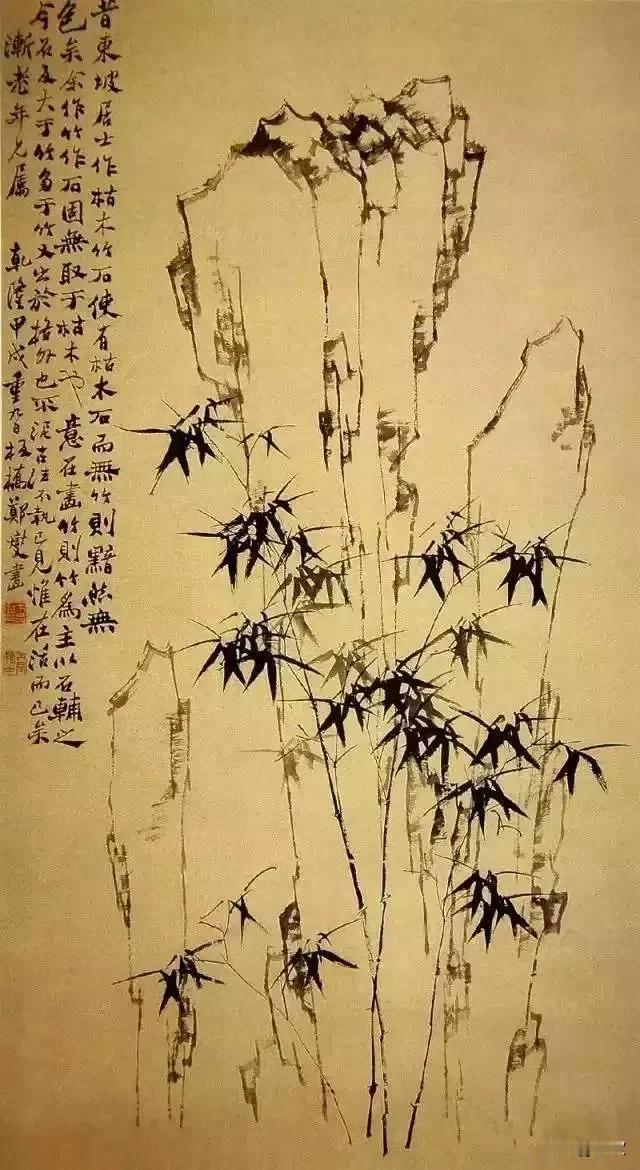 昔東坡居士作枯木竹石使有枯木石而無竹則黯然無
色矣余作竹作石固無取于枯木也意在畫竹則竹為主以石輔之
今石反大于竹多于竹又出於格外也不泥古法不執己見惟在活而已矣
漸老年兄属 乾隆甲戌重九日板橋鄭燮畫